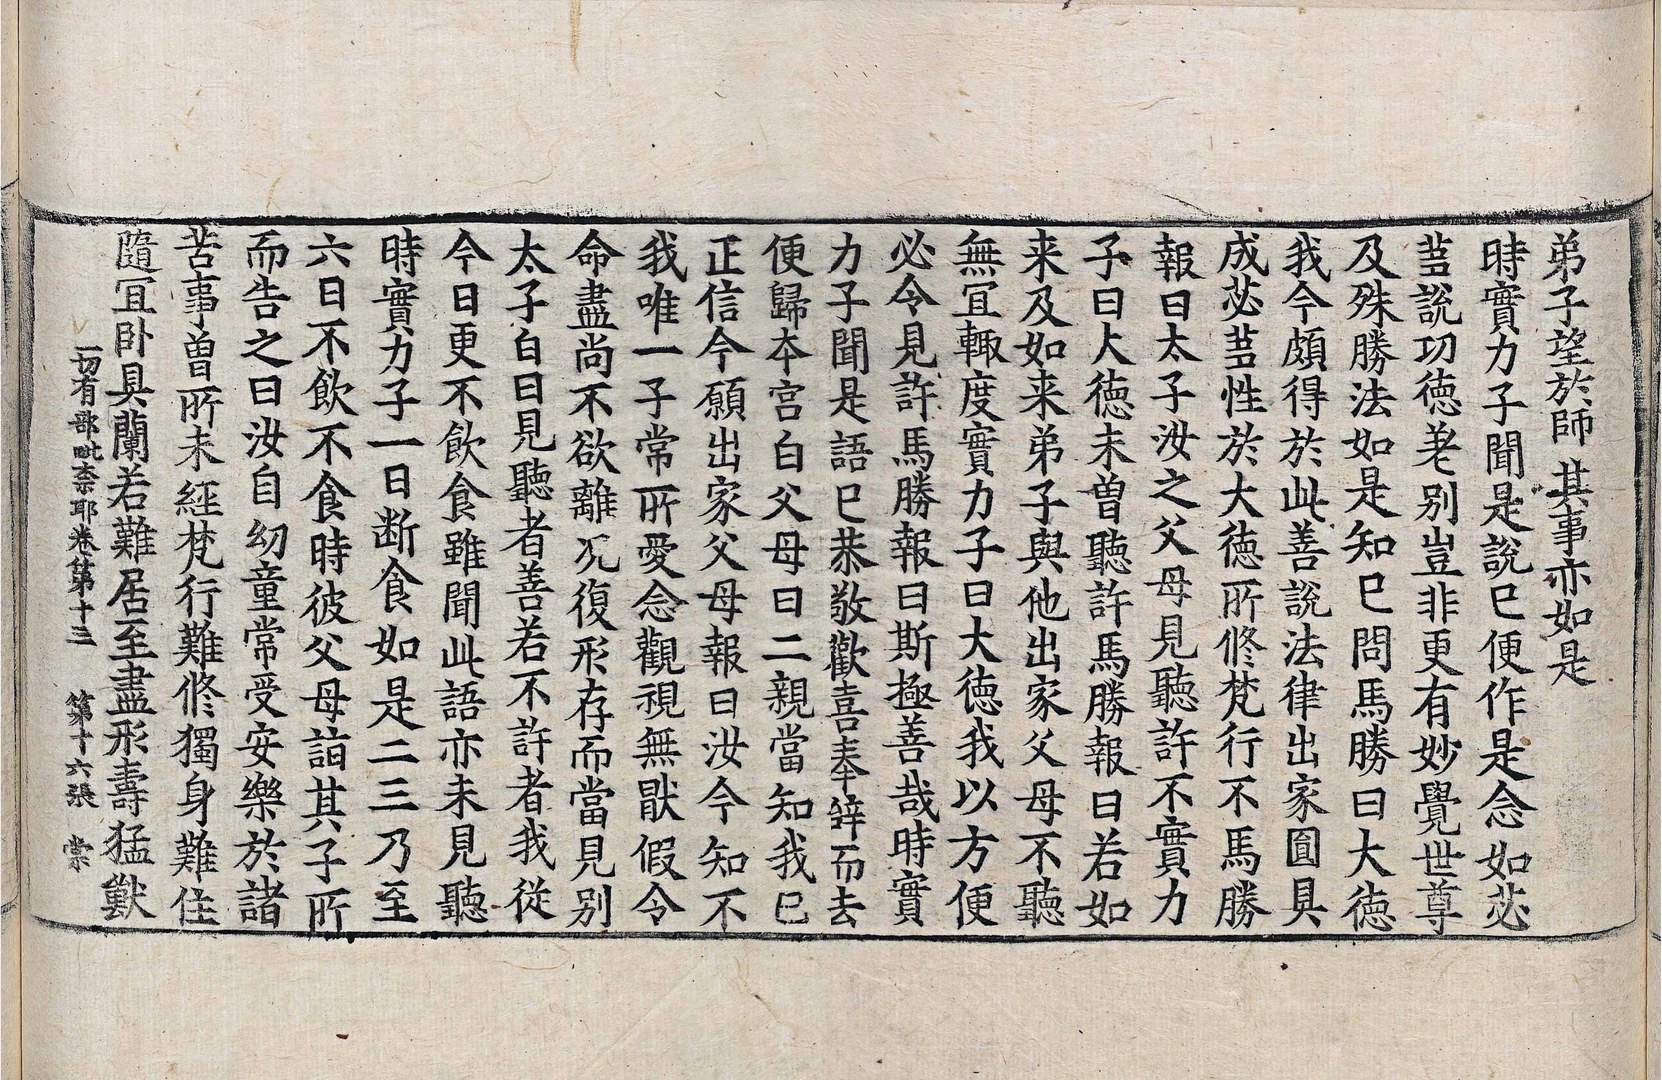 弟子望於師其事亦如是
時實力子聞是說已便作是念如苾
蒭說功德差別豈非更有妙覺世尊
及殊勝法如是知已問馬勝曰大德
我今頗得於此善說法律出家圓具
成苾蒭性於大德所修梵行不馬勝
報曰太子汝之父母見聽許不實力
子曰大德未曾聽許馬勝報曰若如
来及如来弟子與他出家父母不聽
無冝輙度實力子曰大德我以方便
必令見許馬勝報曰斯極善哉時實
力子聞是語已恭敬歡喜奉辝而去
便歸夲宮白父母曰二親當知我已
正信今願出家父母報曰汝今知不
我唯一子常所愛念觀視無猒假令
命盡尚不欲離况復形存而當見別
太子白曰見聽者善若不許者我従
今日更不飲食雖聞此語亦未見聽
時實力子一日断食如是二三乃至
六日不飲不食時彼父母詣其子所
而告之曰汝自幼童常受安樂於諸
苦事曾所未經梵行難修獨身難住
隨冝卧具蘭若難居至盡形壽猛獸
一切有部毗奈耶卷第十三 第十六張 棠